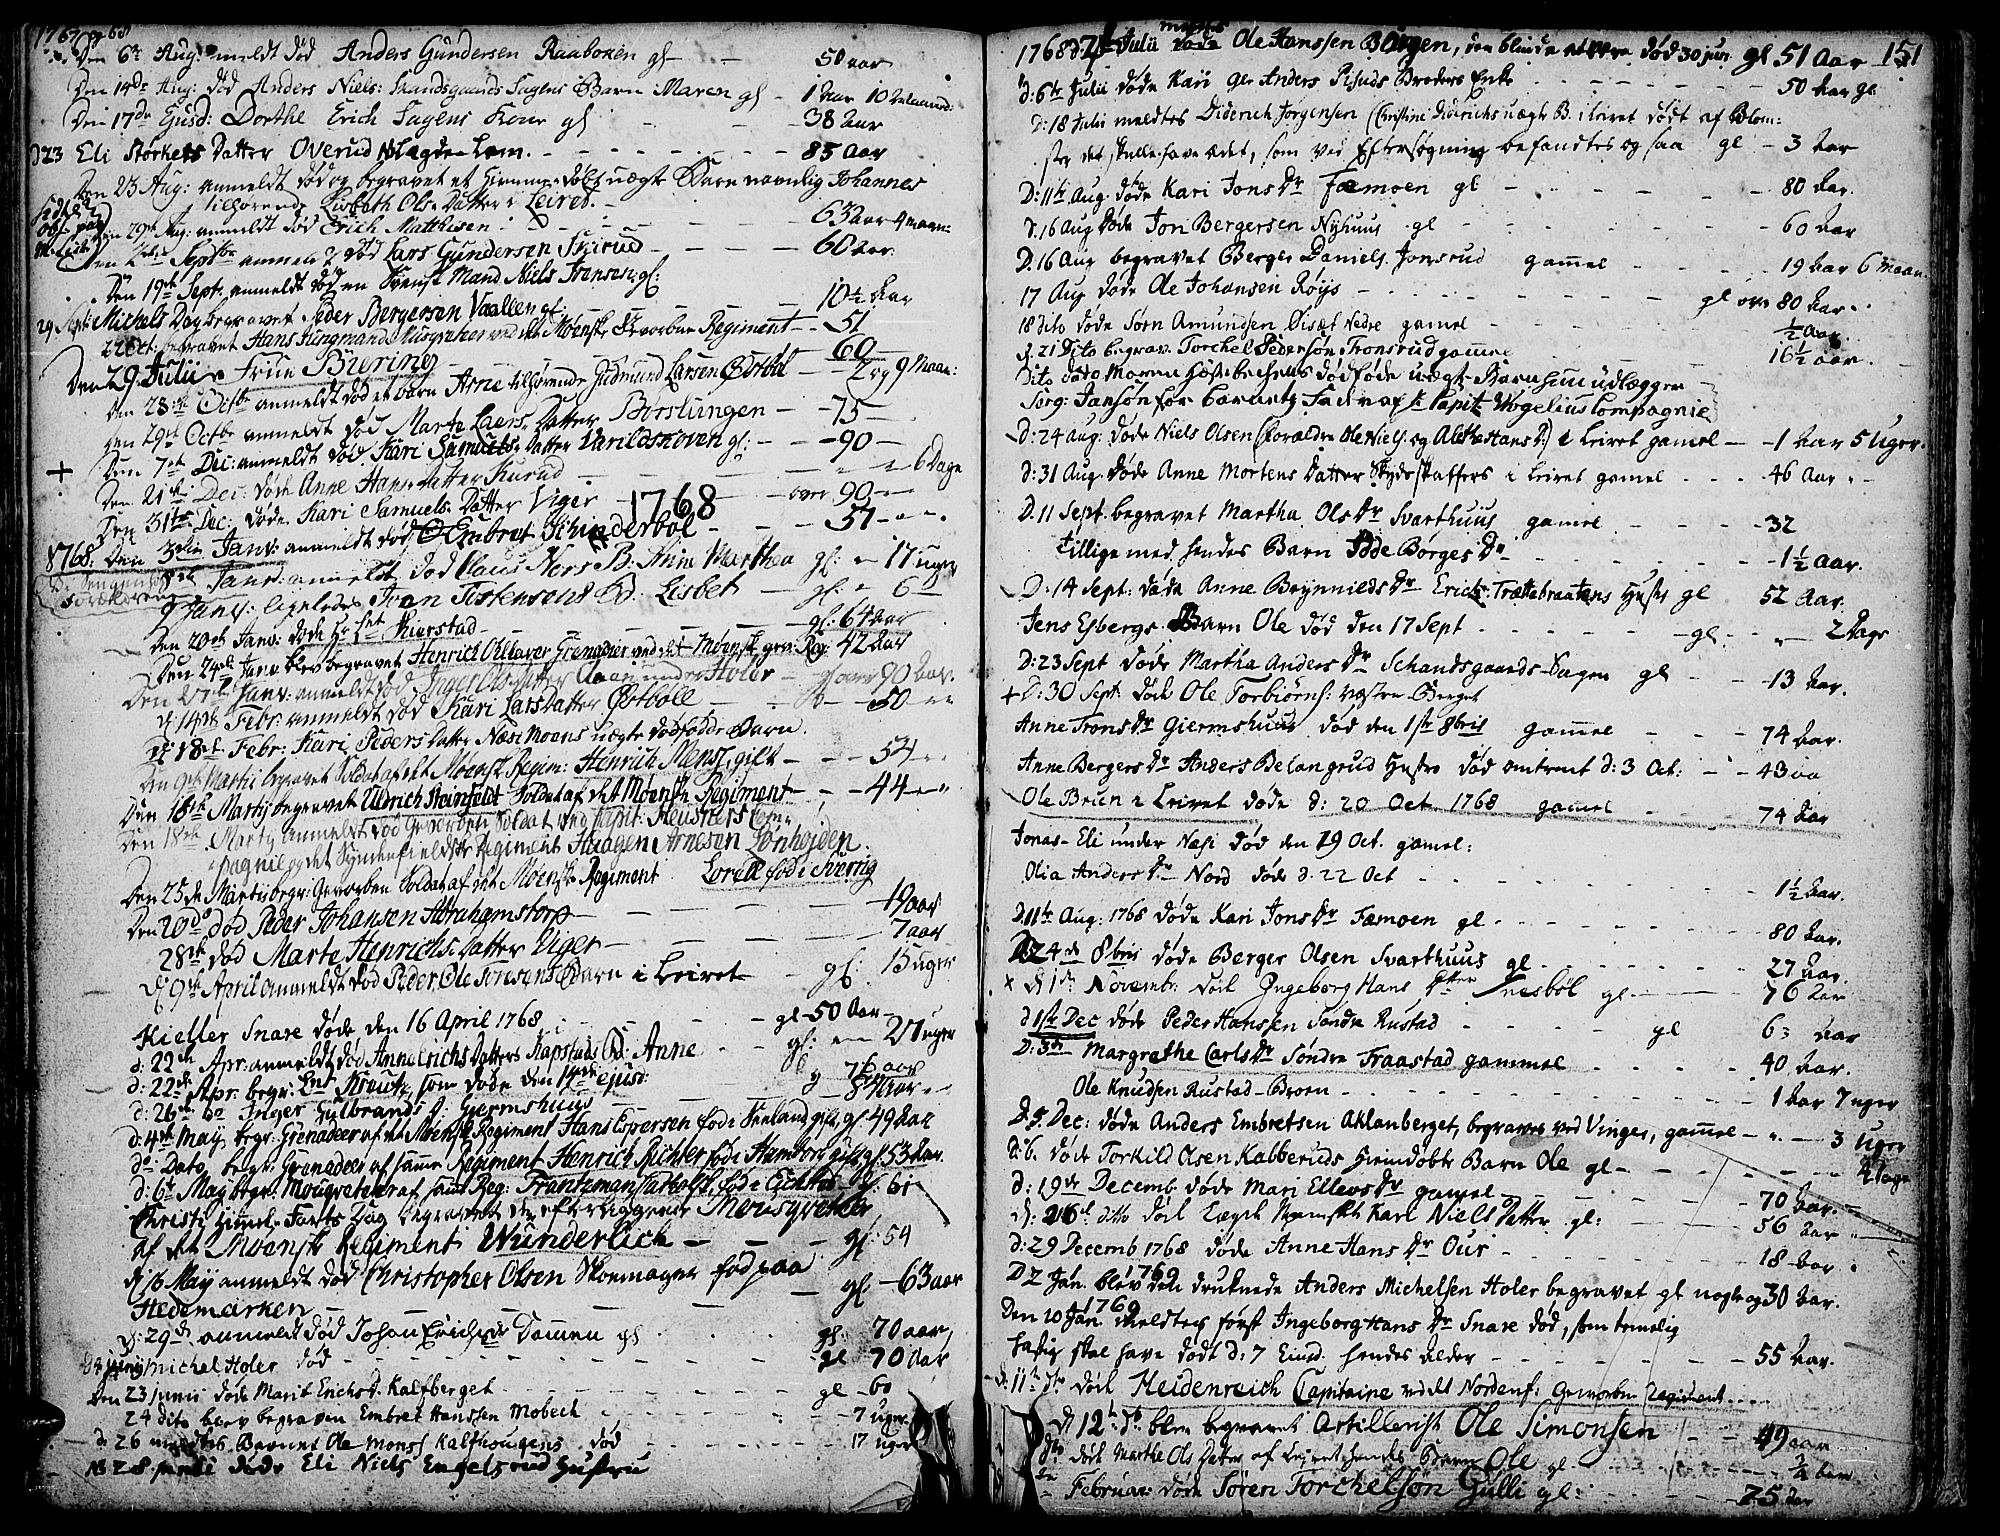 1767 og 68
Den 6te Aug: anmeldt død Anders Gundersen Raaboken gl - - 50 aar
Den 14de Aug: død Anders Niels: Skandsgaards Sagens Barn Maren gl - 1 Aar 10 Maaned:
Den 17de Ejusd: Dorthe Erich Sagens Kone gl - 38 Aar
d 23 Eli Størkers Datter Overud Lagde Lem - - - 85 Aar
Den 23 Aug: anmeldt død og begravet et hjemme døbt uægte Barn navnlig Johannes
tilhørende Lisbeth Ols Datter i Leiret. -
Den 29de Aug: anmeldt død Erich Matthisen - - - 63 Aar 4 maan:
Septbr anmeldt død Lars Gundersen Skirud - - - 60 Aar.
Den 19de Sept: anmeldt død en Svensk Mand Niels Fransen gl:
29 Sept: Michels Dag begravet Peder Bergersen Vaallen gl - 10 1/2 Aar
22 Oct: begravet Hans Hungmand Musqveteer ved det Møenske Gevorbne Regiment - 51
Den 29 Julii Friue Biering - - 60
Den 28de Octbr anmeldt død et barn Arne tilhørende Gudmund Larsen Østbøl - 2 og 9 Maan:
Den 29de Octbr anmeldt død Marte Laers Datter Børslungen - - 75
Den 7de Dec: anmeldt død Kari Samuels Datter Varildskoven gl: - - 90 -
Den 21de Dec: døde Anne Hans Datter Kurud - - - 6 Dage
Den 31te Dec: døde Kari Samuels Datter Viger - over 90
1768
1768: Den 3die Janv: anmeldt død Embret Schinderbøl - - 57
Janv: anmeldt død Claus Ners B: Anne Marthea gl: 17 uger
9 Janv: ligeledes Iven Tostensens B. Lisbet - gl: 6
Den 20de Janv: døde Hr Kierstad - gl: 64 aar
Den 24de Janv blev begravet Henrich Oldaver Grenadier ved det Møensk gev: Reg: 42 Aar
Den 27de Janv: anmeldt død Inger Ols Datter Aaen under Holer - gl over 90 Aar.
d 14de Febr: anmeldt død Kari Lars Datter Østbøll - - - 50
d 18de Febr: Kari Peders Datter Næsi Moens uægte dødfødde Barn.
Den 9de Martii begravet Soldat af det Møensk Regim: Henrich Mensz, gift - - - 54
Den 16de Martij begravet Uldrich Steinfeldt Soldat af det Møenske Regiment - - 44
Den 18de Marty anmeldt død Gevorben Soldat ved Capit: Neusners Com-
pagnie og det Syndenfieldske Regiment Haagen Arnesen Lønhøjden.
Den 25de Martii begr: Gevorben Soldat af det Møensk Regiment Lorentz fød i Sverrig
Den 20do død Peder Johansen Abrahamstorp - - - 19 aar
28de død Marte Henrichs Datter Viger - - - 7 aar
d 9de April anmeldt død Peder Ole Iversens Barn i Leiret - gl: 15 uger
Kieller Snare døde den 16 April 1768 - - gl 50 Aar
d: 22de Apr: anmeldt død Anne Erichs Datters Kapstads B: Anne - gl: 20 uger
d: 22de Apr: begr: Lnt Kreutz, som døde den 14de ejusd: 76 aar
d: 26de do Inger Gulbrands D: Giermshuus
d: 4de May begr: Grenadeer af det Møensk Regiment Hans Espersen fød i Seeland gift, gl 49 Aar
do: Dato begr: Grenadeer af samme Regiment Henrich Richter fød i Hamborg gift gl: 53 Aar.
d: 6te May begr: Mousqveteer af samme Reg:
Christi Himmel-Farts Dag begravet den efterliggende Mousqveteer
af det Møensk Regiment Wunderlich - - - gl: 54
d 16 May anmeldt død Christopher Olsen Skoemager fød paa gl - 63 aar
Hedemarken -
d: 29de anmeldt død Johan Erichsen Dammen gl. gl: 70 aar,
Michel Holer død - - - gl 70 Aar
Den 23 junii døde Marit Erichs D. Kalfberget - - - gl 60
24 dito blev begraven Embret Hanssen Mobech - - 7 uger
d 26 meldtes Barnet Ole Mons Kalfhougens død - - 17 uger
d 28 junii døde Eli Niels Engelsrud Hustru
151
1768 d: 2de Julii meldtes døde Ole Hanssen Børgen, den blinde at være død 30 jun gl 51 Aar
d: 6te Julii døde Kari gl: Anders Pisuds Broders Enke - - 50 Aar gl
D: 18 Julii meldtes Diderich Jørgensen (Christine Dideriches uægte B. i Leiret dødt af Blom:
ster det skulle have ædet, som ved Eftersøgning befandtes og saa gl - 3 Aar
D: 11te Aug. døde Kari Jons Dr Fæmoen gl - - 80 Aar.
d. 16 Aug døde Jon Bergersen Nyhuus gl - - 60 Aar
D. 16 Aug begravet Berger Daniels. Jonsrud gammel - - 19 Aar 6 maan
17 Aug døde Ole Johansen Røys - - gl over 80 Aar
18 dito døde Sørn Amundsen Disæt Nedre gamel - - 1/2 Aar
d. 21 Dito begrav. Torchel Pedersøn Tronsrud gammel - - 16 1/2 aar.
Dito dato Maren dødføde uægte Barn hun udlægger
Serg: Jansøn for barnets Fader af Capit Wogelius Compagnie
D: 24 Aug: døde Niels Olsen (Forældre Ole Niels. og Alethe Hans D:) i Leiret gamel - 1 Aar 5 Uger.
d: 31 Aug. døde Anne Mortens Datter Skydsskaffers i Leiret gamel - - 46 Aar
D. 11 Sept begravet Martha Ols Dr Svarthuus gamel - - 32
Tillige med hendes Barn Søde Børges Dr - - 1 1/2 Aar.
D: 14 Sept: døde Anne Brynnilds Dr Erich Trættebraatens Hustr gl 52 Aar.
Jens Esbergs Barn Ole død den 17 Sept - - gl - 2 Dage
D: 23 Sept døde Martha Anders Dr Schandsgaards-Sagen gl - - 13 Aar.
+ D: 30 Sept: døde Ole Torbiørns: Vestre-Berget
Anne Trons Dr Giermshuus død den 1ste 8bris gamel - - 74 Aar.
Anne Bergers Dr Anders Belangrud Hustro død omtrent d: 3 Oct: - - 43 aa
Ole Brun i Leiret døde d: 20 Oct 1768 gamel - - 74 Aar
Jonas-Eli under Næsi død den 19 Oct. gamel:
Olia Anders Dr Nord døde d. 22 Oct - - 1 1/2 Aar.
D. 11te Aug: 1768 døde Kari Jons Dr Fæmoen gl - - 80 Aar.
D 24de 8bris døde Berger Olsen Svarthuus gl - - 27 Aar
x d 1de Novembr: død Ingeborg Hans Dtter Snesbøl gl. - - 76 Aar
d 1ste Dec døde Peder Hanssen Søndre Rustad - - gl 63 Aar
D: 3de Margrethe Carls Dr Søndre Fraastad gammel - - 40 Aar.
Ole Knudsen Rustad-Broen - - 1 Aar 7 uger
D. 5 Dec: døde Anders Embretsen Aklanberget, begraves ved Vinger, gammel - - 3 Uger
d: 6. døde Torkild Olsen Kalberuds Hjemdøbte Barn Ole gl - - 4 dage
d: 19de Decemb døde Mari Ellevs Dr gamel - - 70 Aar.
d: 26de ditto død Lægds Mennisket Kari Niels Datter gl: - - 56 Aar
d: 29 Decemb 1768 døde Anne Hans Dr Our - - 18 Aar
D 2 Jan. 1769 blev den druknede Anders Michelsen Holer begravet gl nogle og 30 Aar.
Den 10 Jan 1769 meldtes først Ingeborg Hans Dr Snare død, som temelig
hastig skal have dødt d: 7 Eiusd. hendes alder - - 55 Aar.
d: 11te do død Heidenreich Capitaine ved det Nordenf: Gevorbne Regiment
d 12te do blev begravet Artillerist Ole Simonsen - - 49 aar
do død Marthe Ols Datter af Leiret hendes Barn Ole gl - - 3/4 Aar
Februar: døde Søren Torchelsøn Gulli gl: - - 75 Aar